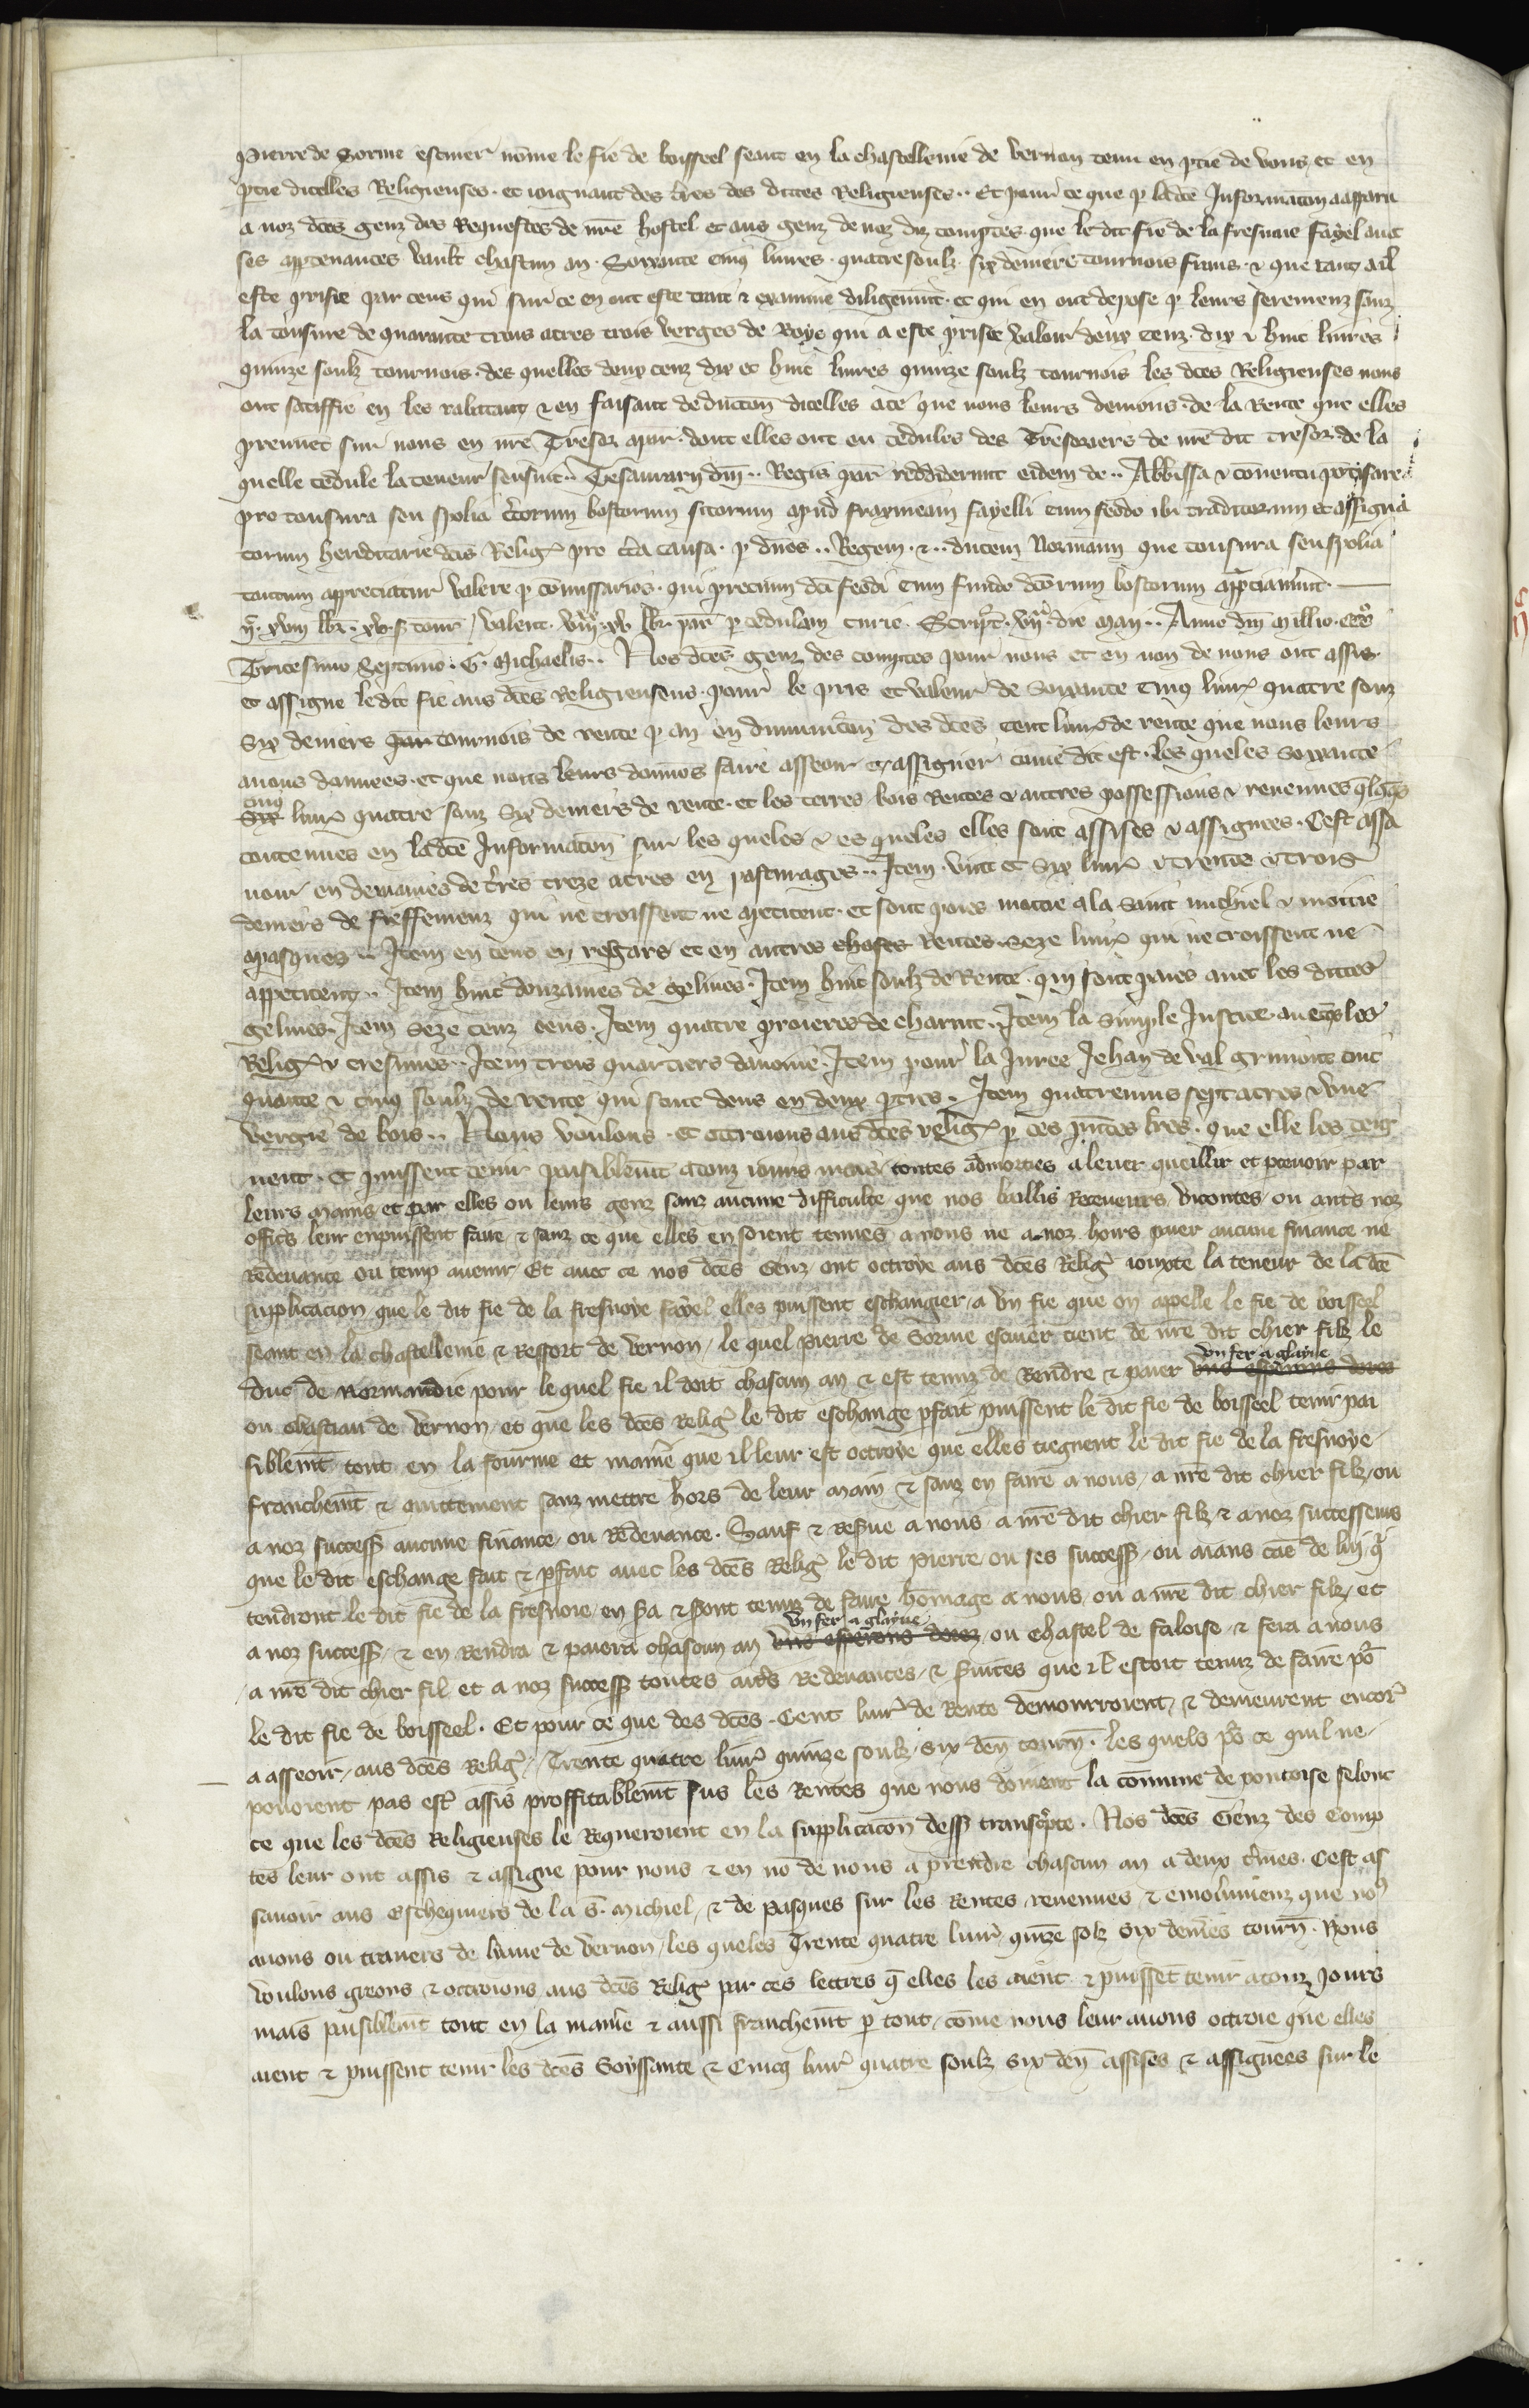 Pierre de Sorme escuier nōme le fie de boisseel seant en la chastellenie de vernon tenu en ptie de vous et en
ptie dicelles Religieuses. et ioignant des tr̄es des dittes Religieuses.. Et pour ce que p lad̄te Informacion aapparu
a noz dc̄es genz des Requestes de nr̄e hostel et aus genz de noz diz comptes que le dit fie de la fresnaie fayel auec
ses aptenances vault chascun an. Soixante cinq liures. quatre soulz. six deniers tournois frans. & que tant a il
este prisie par ceus qui sur ce en ont este trait & examine diligem̄nt. et qui en ont depose p leurs seremenz sanz
la tonsure de quarante trois acres trois verges de Boys qui a este prisee valoir deux cenz. dix & huit liures
quinze soulz tournois. des quelles deux cenz dix et huit liures quinze soulz tournois les dc̄es Religieuses nous
ont satiffie en les rabatant & en faisant deduccōn dicelles a ce que nous leurs deuions. de la Rente que elles
prennent sur nous en nr̄e Tresor apar. dont elles ont eu cedules des Tresoriers de nr̄e dit tresor. de la
quelle cedule la teneur sensuit.. Thesaurarij dn̄i.. Regis par reddiderunt eidem de.. Abbissa & conuentu pōtisare.
pro tonsura seu spolia c̄torum boscorum sitorum apud fraxineam fayelli cum feodo ibi traditorum et assigna
torum hereditarie dc̄is Relig pro c̄ta causa. p dn̄os.. Regem. &.. ducem Normann que tonsura seu spolia
tantum appreciatur valere p cōmissarios. qui precium dc̄i feodi cum fundo dc̄orum boscorum app̄ciaru̅nt.
ijc. xviij lbr. xv. s. tour / valent. viijxx. xv lbr. par p cedulam curie. Script. vija die maij.. Anno dn̄i millio. ccco
Tricesimo Septimo. G. Michaelis.. Nos dc̄es genz des comptes pour nous et en non de nous ont assis.
et assigne le dit fie aus dc̄es Religieuses. pour le pris et valeur de Soixante cinq liur quatre souz
six deniers par tournois de rente p an en diminucōn des dc̄es cent liur de rente que nous leurs
auons donnees. et que nous leurs deuions faire asseoir & assigner come dit est. les queles Soixante
cinq
Six liur quatre souz six deniers de rente. et les terres / bois Rentes & autres possessions & reuenues q̄lqs
contenues en lad̄te Informacōn sur les queles & es queles elles sont assises & assignees. Cest assa
uoir en demaines de tr̄es treze acres en pasturages.. Item. vint et six liur & trente & trois
deniers de fieffemenz qui ne croissent ne apeticent. et sont paies moitie a la saint michiel & moitie
apasques.. Item en cens en regars et en autres choses Rentes. Seze liur qui ne croissent ne
appeticent.. Item huit donzaines de gelines. Item huit soulz de Rente. qui sont paies auec les dittes
gelines. Item Seze cenz oeus. Item quatre proieres de charrue. Item la simple Justice. auecqs les
Relig & tresiemes.. Item trois quartiers dauoine. Item pour la Juree Jehan de val grimont cinc
quante & cinq soulz de rente qui sont deus en deux pties. Item quatreuins sept acres & vne
vergie de bois.. Nous voulons. et ottroions aus dc̄es relig p ces p̄ntes lr̄es. que elle les teig
nent. Et puissent tenir paisiblem̄t a touz iours mais / toutes admorties a leuer queillir et pceuoir par
leurs mains et par elles ou leurs genz sanz aucune difficulte que nos baillis Receueurs vicontes / ou autrs noz
offics leur en puissent faire / & sanz ce que elles en soient tenues a nous ne a noz hoirs paier aucune finance ne
Redeuance ou temp auenir / Et auec ce nos dc̄es Genz / ont octroye aus dc̄es Relig iouxte la teneur de la dc̄e
supplicacion que le dit fie de la fresnoye fayel elles puissent eschangier / a vn fie que on apelle le fie de boisseel
seant en la chastellenie & Ressort de vernon / le quel pierre de Sorme escuier tient de nr̄e dit chier filz le
duc de Normandie pour le quel fie il doit chascun an & est tenuz de Rendre & paier vns esperons dorez vn fer a glaiue
ou chastiau de vernon / et que les dc̄es Relig le dit eschange pfait puissent le dit fie de boisseel tenir pai
siblem̄t tout en la fourme et manie que il leur est octroye que elles tiegnent le dit fie de la fresnoye
franchem̄t & quittement sanz mettre hors de leur main & sanz en faire a nous / a nr̄e dit chier filz / ou
a noz success aucune finance / ou Redeuance. Sauf & Resue a nous a nr̄e dit chier filz & a noz successeurs
que le dit eschange fait & pfait auec les dc̄es Relig le dit pierre / ou ses success / ou aians cāe de lui / q̄
tendront le dit fie de la fresnoie / en s̄a & s̄ont tenuz de faire hom̄age a nous / ou a nr̄e dit chier filz / et
a noz success / & en Rendra & paiera chascun an vns esperons dorez vn fer a glaiue / ou chastel de faloise / & fera a nous
/ a nr̄e dit chier fil et a noz success toutes autrs Redeuances / & s̄uices que il estoit tenuz de faire po
le dit fie de boisseel. Et pour ce que des dc̄es. Cent liur de Rente demourroient / & demeurent encor
a asseoir / aus dc̄es Relig / Trente quatre liur quinze soulz / six den̄ tourn̄. les quels po ce quil ne
pouoient pas estr assis proffitablem̄t sus les Rentes que nous doiuent la cōmune de pontoise selont
ce que les dc̄es Religieuses le Requeroient en la supplicacōn dess transcpte. Nos dc̄es Genz des Comp
tes leur ont assis & assigne pour nous & en nō de nous a prendre chascun an a deux t̄mes. Cest as
sauoir aus Eschequiers de la S. Michiel / & de Pasques sur les Rentes / reuenues / & emolumenz que no9
auons ou trauers de liaue de vernon / les queles Trente quatre liur quinze solz six deniers tourn̄. Nous
voulons greons & octroions aus dc̄es Relig par ces lettres q̄ elles les aient & puissēt tenir a touz Jours
mais paisiblem̄t tout en la manie & aussi franchem̄t p tout / cōme nous leur auons octroie que elles
aient & puissent tenir les dc̄es Soyssante & Cincq liur quatre soulz six den̄ assises & assignees sur le